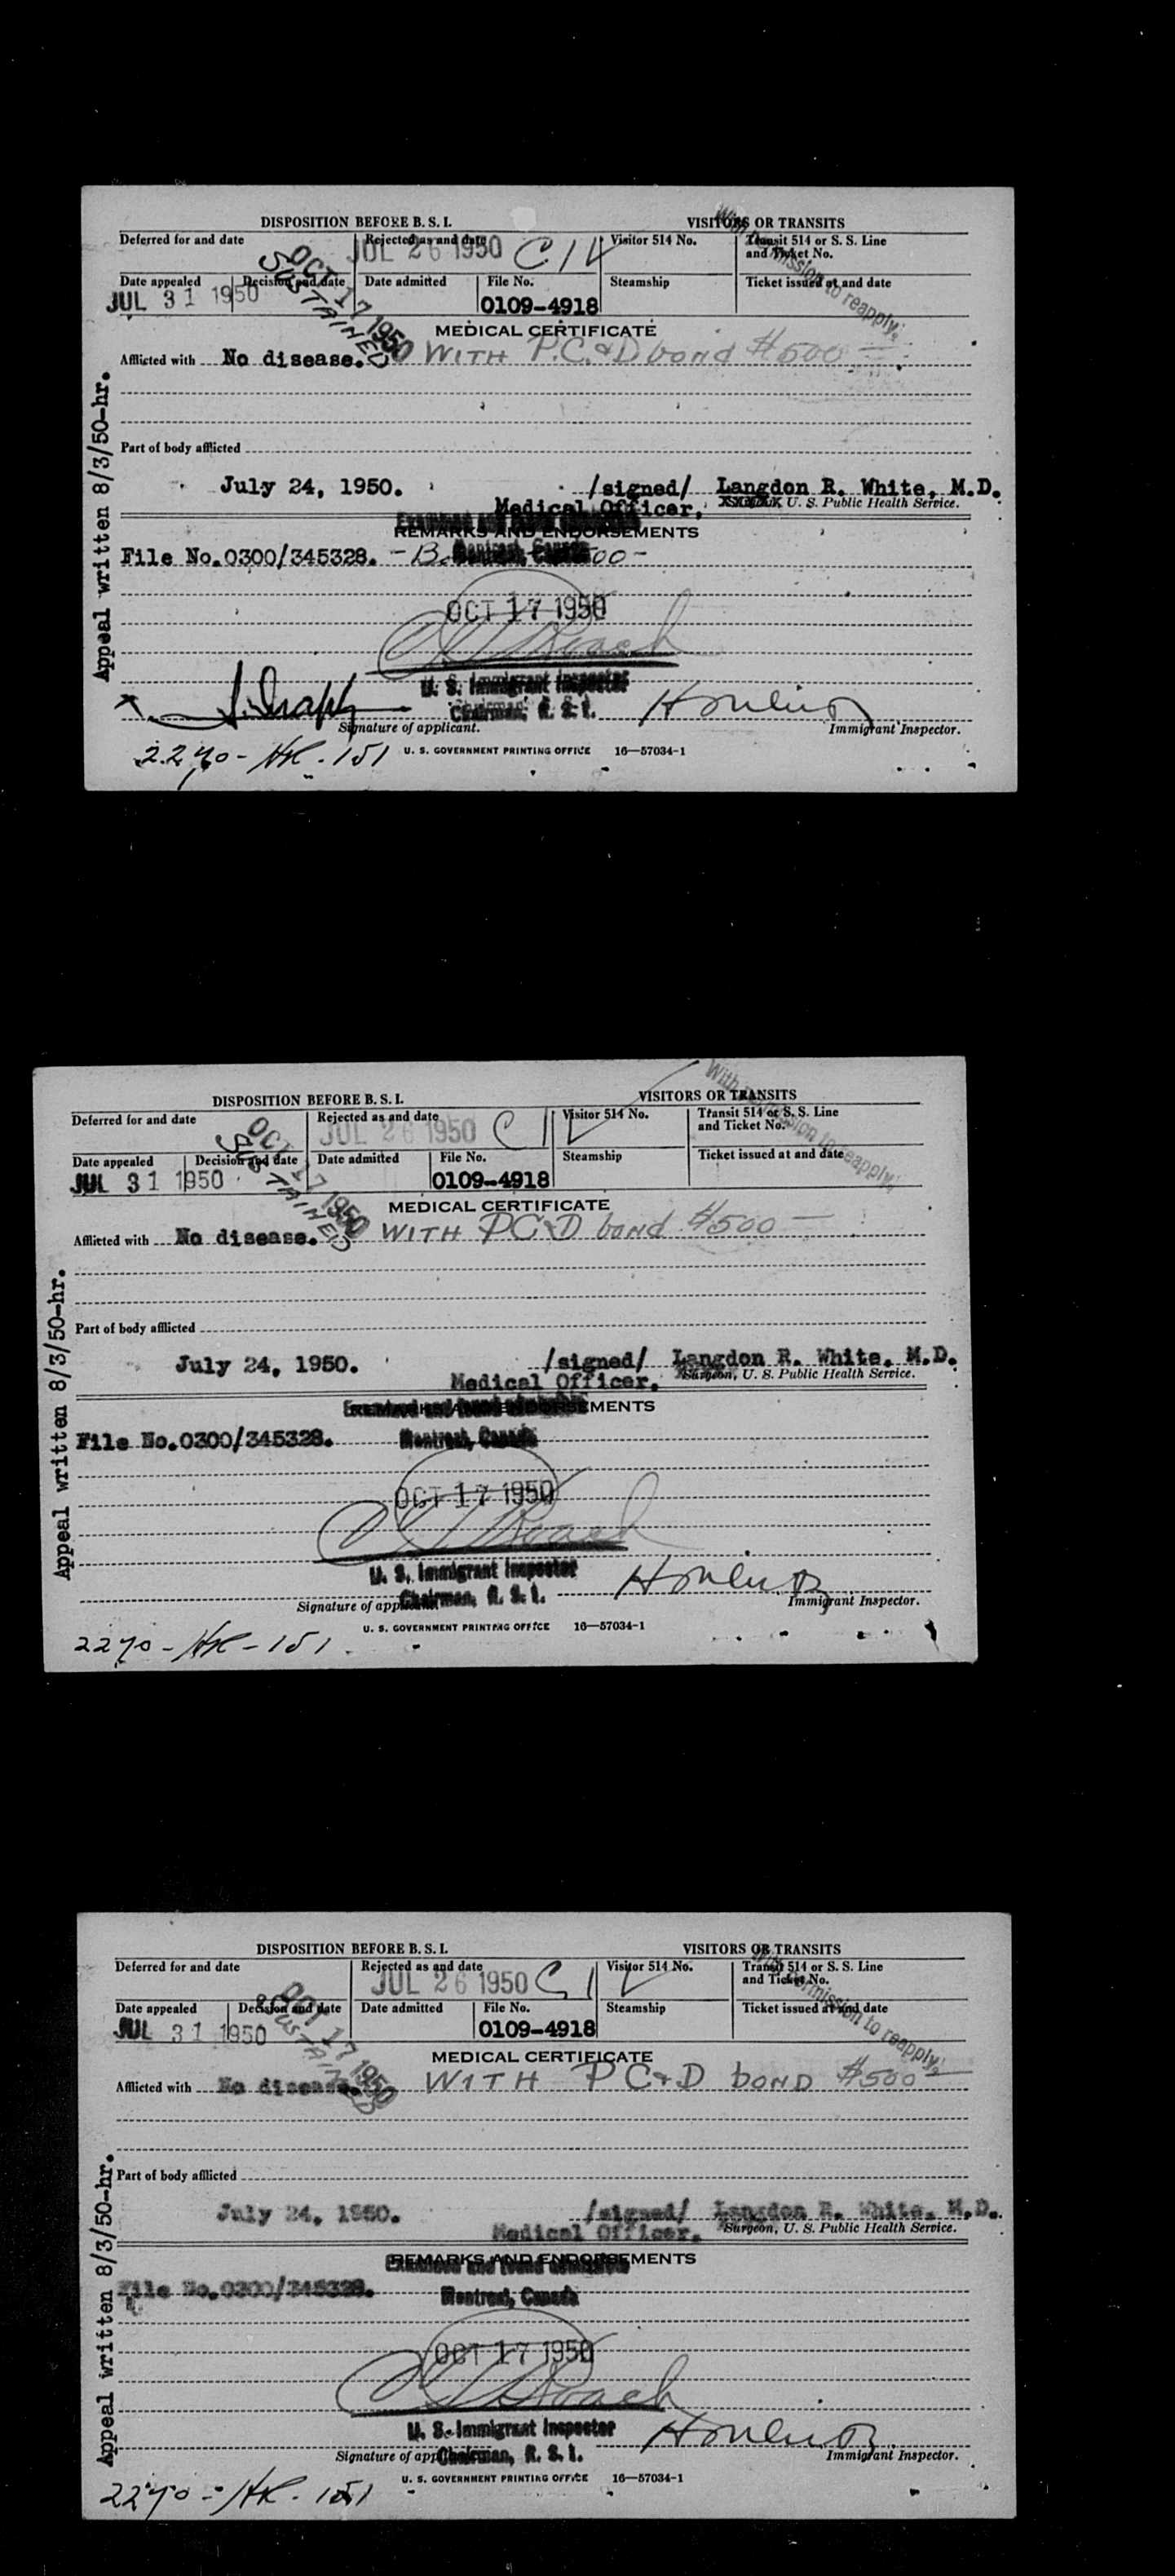 DISPOSITION BEFORE B. S. I. VISITORS OR TRANSITS
Deferred for and date Rejected as and date Visitor 514 No. Transit 514 or S. S. Line
JUL 26 1950 and Ticket No.
With permission to reapply.
Date appealed Decision and date Date admitted File No. Steamship Ticket issued at and date
JUL 31 1950 OCT 17 1950 0109-4918
SUSTAINED
MEDICAL CERTIFICATE
Afflicted with No disease. WITH P.C.&D bond $500—
Part of body afflicted
July 24, 1950. /signed/ Langdon R. White, M.D.
Medical Officer, U. S. Public Health Service.
REMARKS AND ENDORSEMENTS
File No.0300/345328.
Montreal, Canada
OCT 17 1950
Roach
U. S. Immigrant Inspector
Chairman, B. S. I.
Signature of applicant. Immigrant Inspector.
U. S. GOVERNMENT PRINTING OFFICE 16—57034-1
Appeal written 8/3/50-hr.
DISPOSITION BEFORE B. S. I. VISITORS OR TRANSITS
Deferred for and date Rejected as and date Visitor 514 No. Transit 514 or S. S. Line
JUL 26 1950 and Ticket No.
With permission to reapply.
Date appealed Decision and date Date admitted File No. Steamship Ticket issued at and date
JUL 31 1950 OCT 17 1950 0109-4918
SUSTAINED
MEDICAL CERTIFICATE
Afflicted with No disease. WITH PC&D bond $500—
Part of body afflicted
July 24, 1950. /signed/ Langdon R. White, M.D.
Medical Officer, Surgeon, U. S. Public Health Service.
REMARKS AND ENDORSEMENTS
File No.0300/345328. Montreal, Canada
OCT 17 1950
Roach
U. S. Immigrant Inspector
Chairman, B. S. I.
Signature of applicant. Immigrant Inspector.
U. S. GOVERNMENT PRINTING OFFICE 16—57034-1
Appeal written 8/3/50-hr.
DISPOSITION BEFORE B. S. I. VISITORS OR TRANSITS
Deferred for and date Rejected as and date Visitor 514 No. Transit 514 or S. S. Line
JUL 26 1950 and Ticket No.
With permission to reapply.
Date appealed Decision and date Date admitted File No. Steamship Ticket issued at and date
JUL 31 1950 OCT 17 1950 0109-4918
SUSTAINED
MEDICAL CERTIFICATE
Afflicted with No disease. WITH PC&D BOND $500—
Part of body afflicted
July 24, 1950. /signed/ Langdon R. White, M.D.
Medical Officer, Surgeon, U. S. Public Health Service.
REMARKS AND ENDORSEMENTS
Examined and found admissible
File No.0300/345328. Montreal, Canada
OCT 17 1950
Roach
U. S. Immigrant Inspector
Chairman, B. S. I.
Signature of applicant. Immigrant Inspector.
U. S. GOVERNMENT PRINTING OFFICE 16—57034-1
Appeal written 8/3/50-hr.